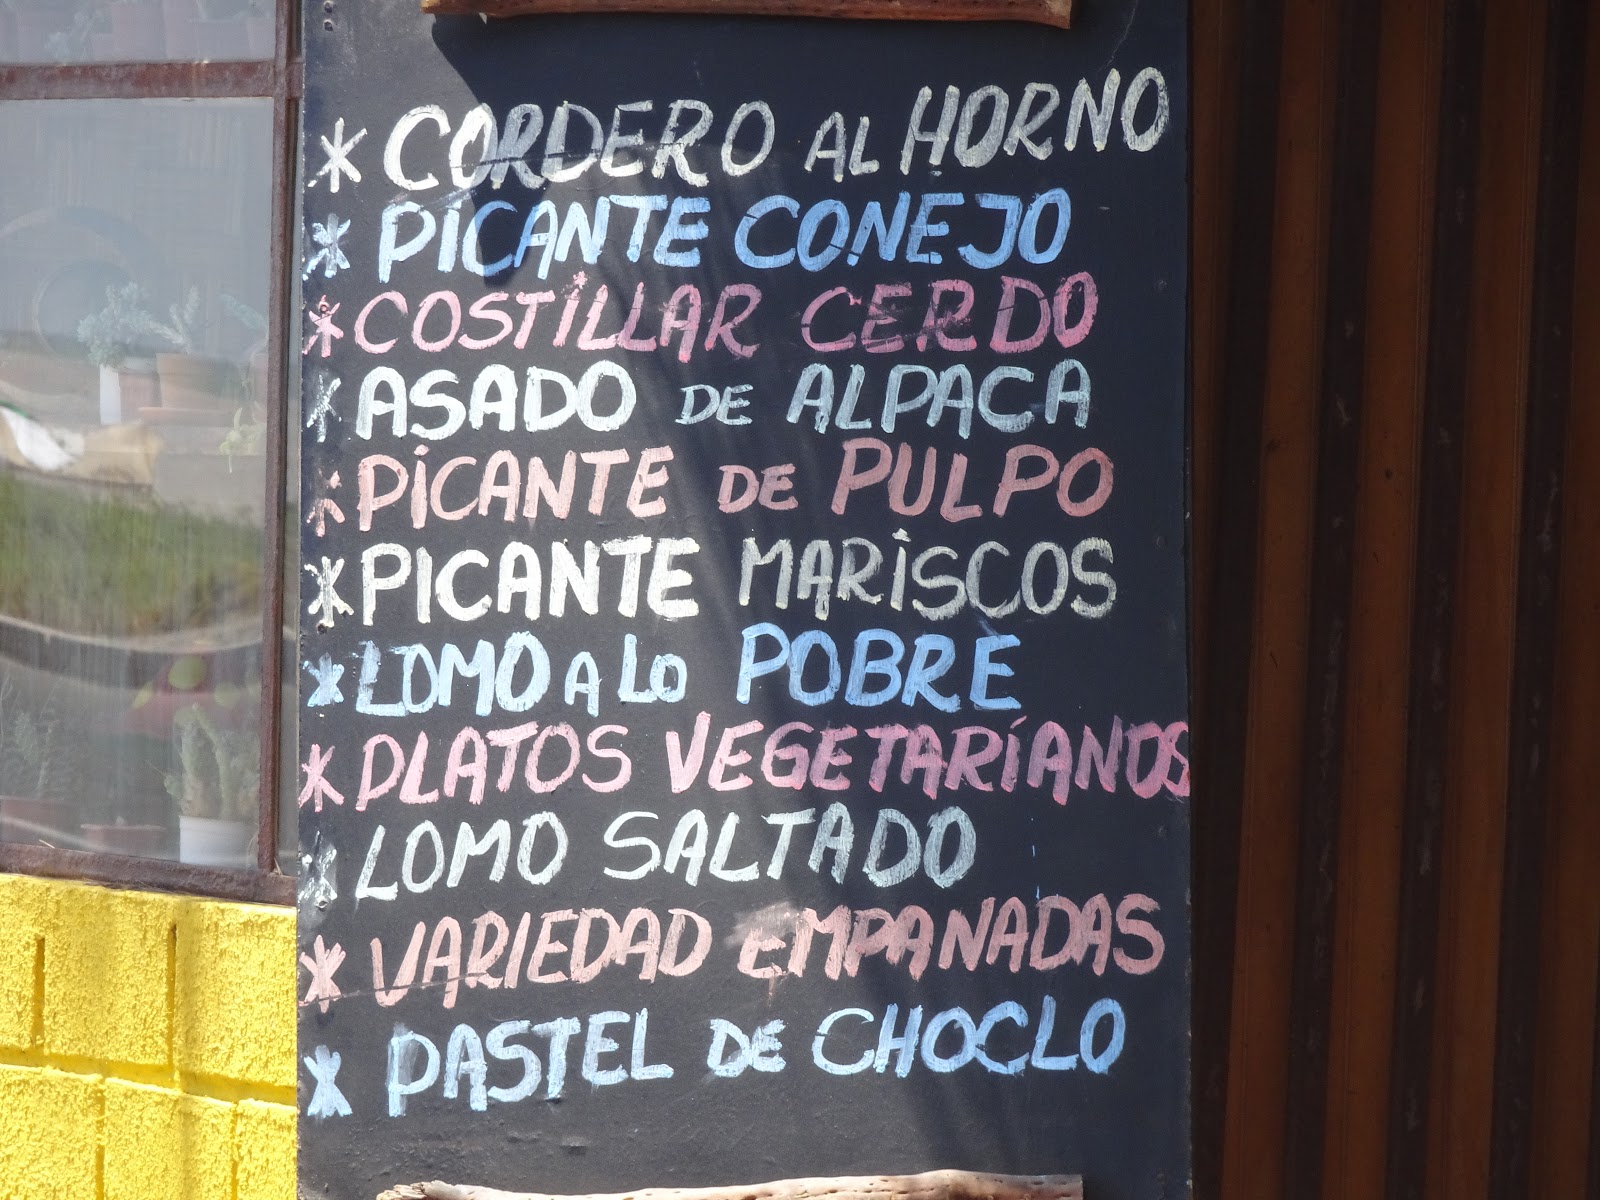 * CORDERO AL HORNO
* PICANTE CONEJO
* COSTILLAR CERDO
* ASADO DE ALPACA
* PICANTE DE PULPO
* PICANTE MARISCOS
* LOMO A LO POBRE
* PLATOS VEGETARIANOS
* LOMO SALTADO
* VARIEDAD EMPANADAS
* PASTEL DE CHOCLO